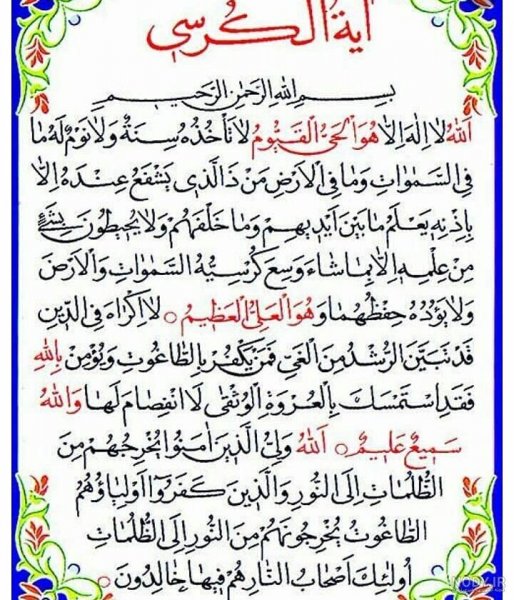 آیة الکرسي
بِسْمِ اللهِ الرَّحْمٰنِ الرَّحیمِ
اَللهُ لا اِلٰهَ اِلاّ هُوَ الْحَیُّ الْقَیُّومُ لا تَأْخُذُهُ سِنَةٌ وَلا نَوْمٌ لَهُ ما
فِی السَّمٰواتِ وَما فِی الْاَرْضِ مَنْ ذَا الَّذی یَشْفَعُ عِنْدَهُ اِلاّ
بِاِذْنِهِ یَعْلَمُ ما بَیْنَ اَیْدیهِمْ وَما خَلْفَهُمْ وَلا یُحیطُونَ بِشَیْءٍ
مِنْ عِلْمِهِ اِلاّ بِما شاءَ وَسِعَ کُرْسِیُّهُ السَّمٰواتِ وَالْاَرْضَ
وَلا یَؤُدُهُ حِفْظُهُما وَ هُوَ الْعَلِیُّ الْعَظیمُ ○ لا اِکْراهَ فِی الدّینِ
قَدْ تَبَیَّنَ الرُّشْدُ مِنَ الْغَیِّ فَمَنْ یَکْفُرْ بِالطّاغُوتِ وَیُؤْمِنْ بِاللهِ
فَقَدِ اسْتَمْسَكَ بِالْعُرْوَةِ الْوُثْقٰی لَا انْفِصامَ لَها وَاللهُ
سَمیعٌ عَلیمٌ ○ اَللهُ وَلِیُّ الَّذینَ اٰمَنُوا یُخْرِجُهُمْ مِنَ
الظُّلُماتِ اِلَی النُّورِ وَالَّذینَ کَفَرُوا اَوْلِیاؤُهُمُ
الطّاغُوتُ یُخْرِجُونَهُمْ مِنَ النُّورِ اِلَی الظُّلُماتِ
اُولٰئِكَ اَصْحابُ النّارِ هُمْ فیها خالِدُونَ ○
NODY.IR